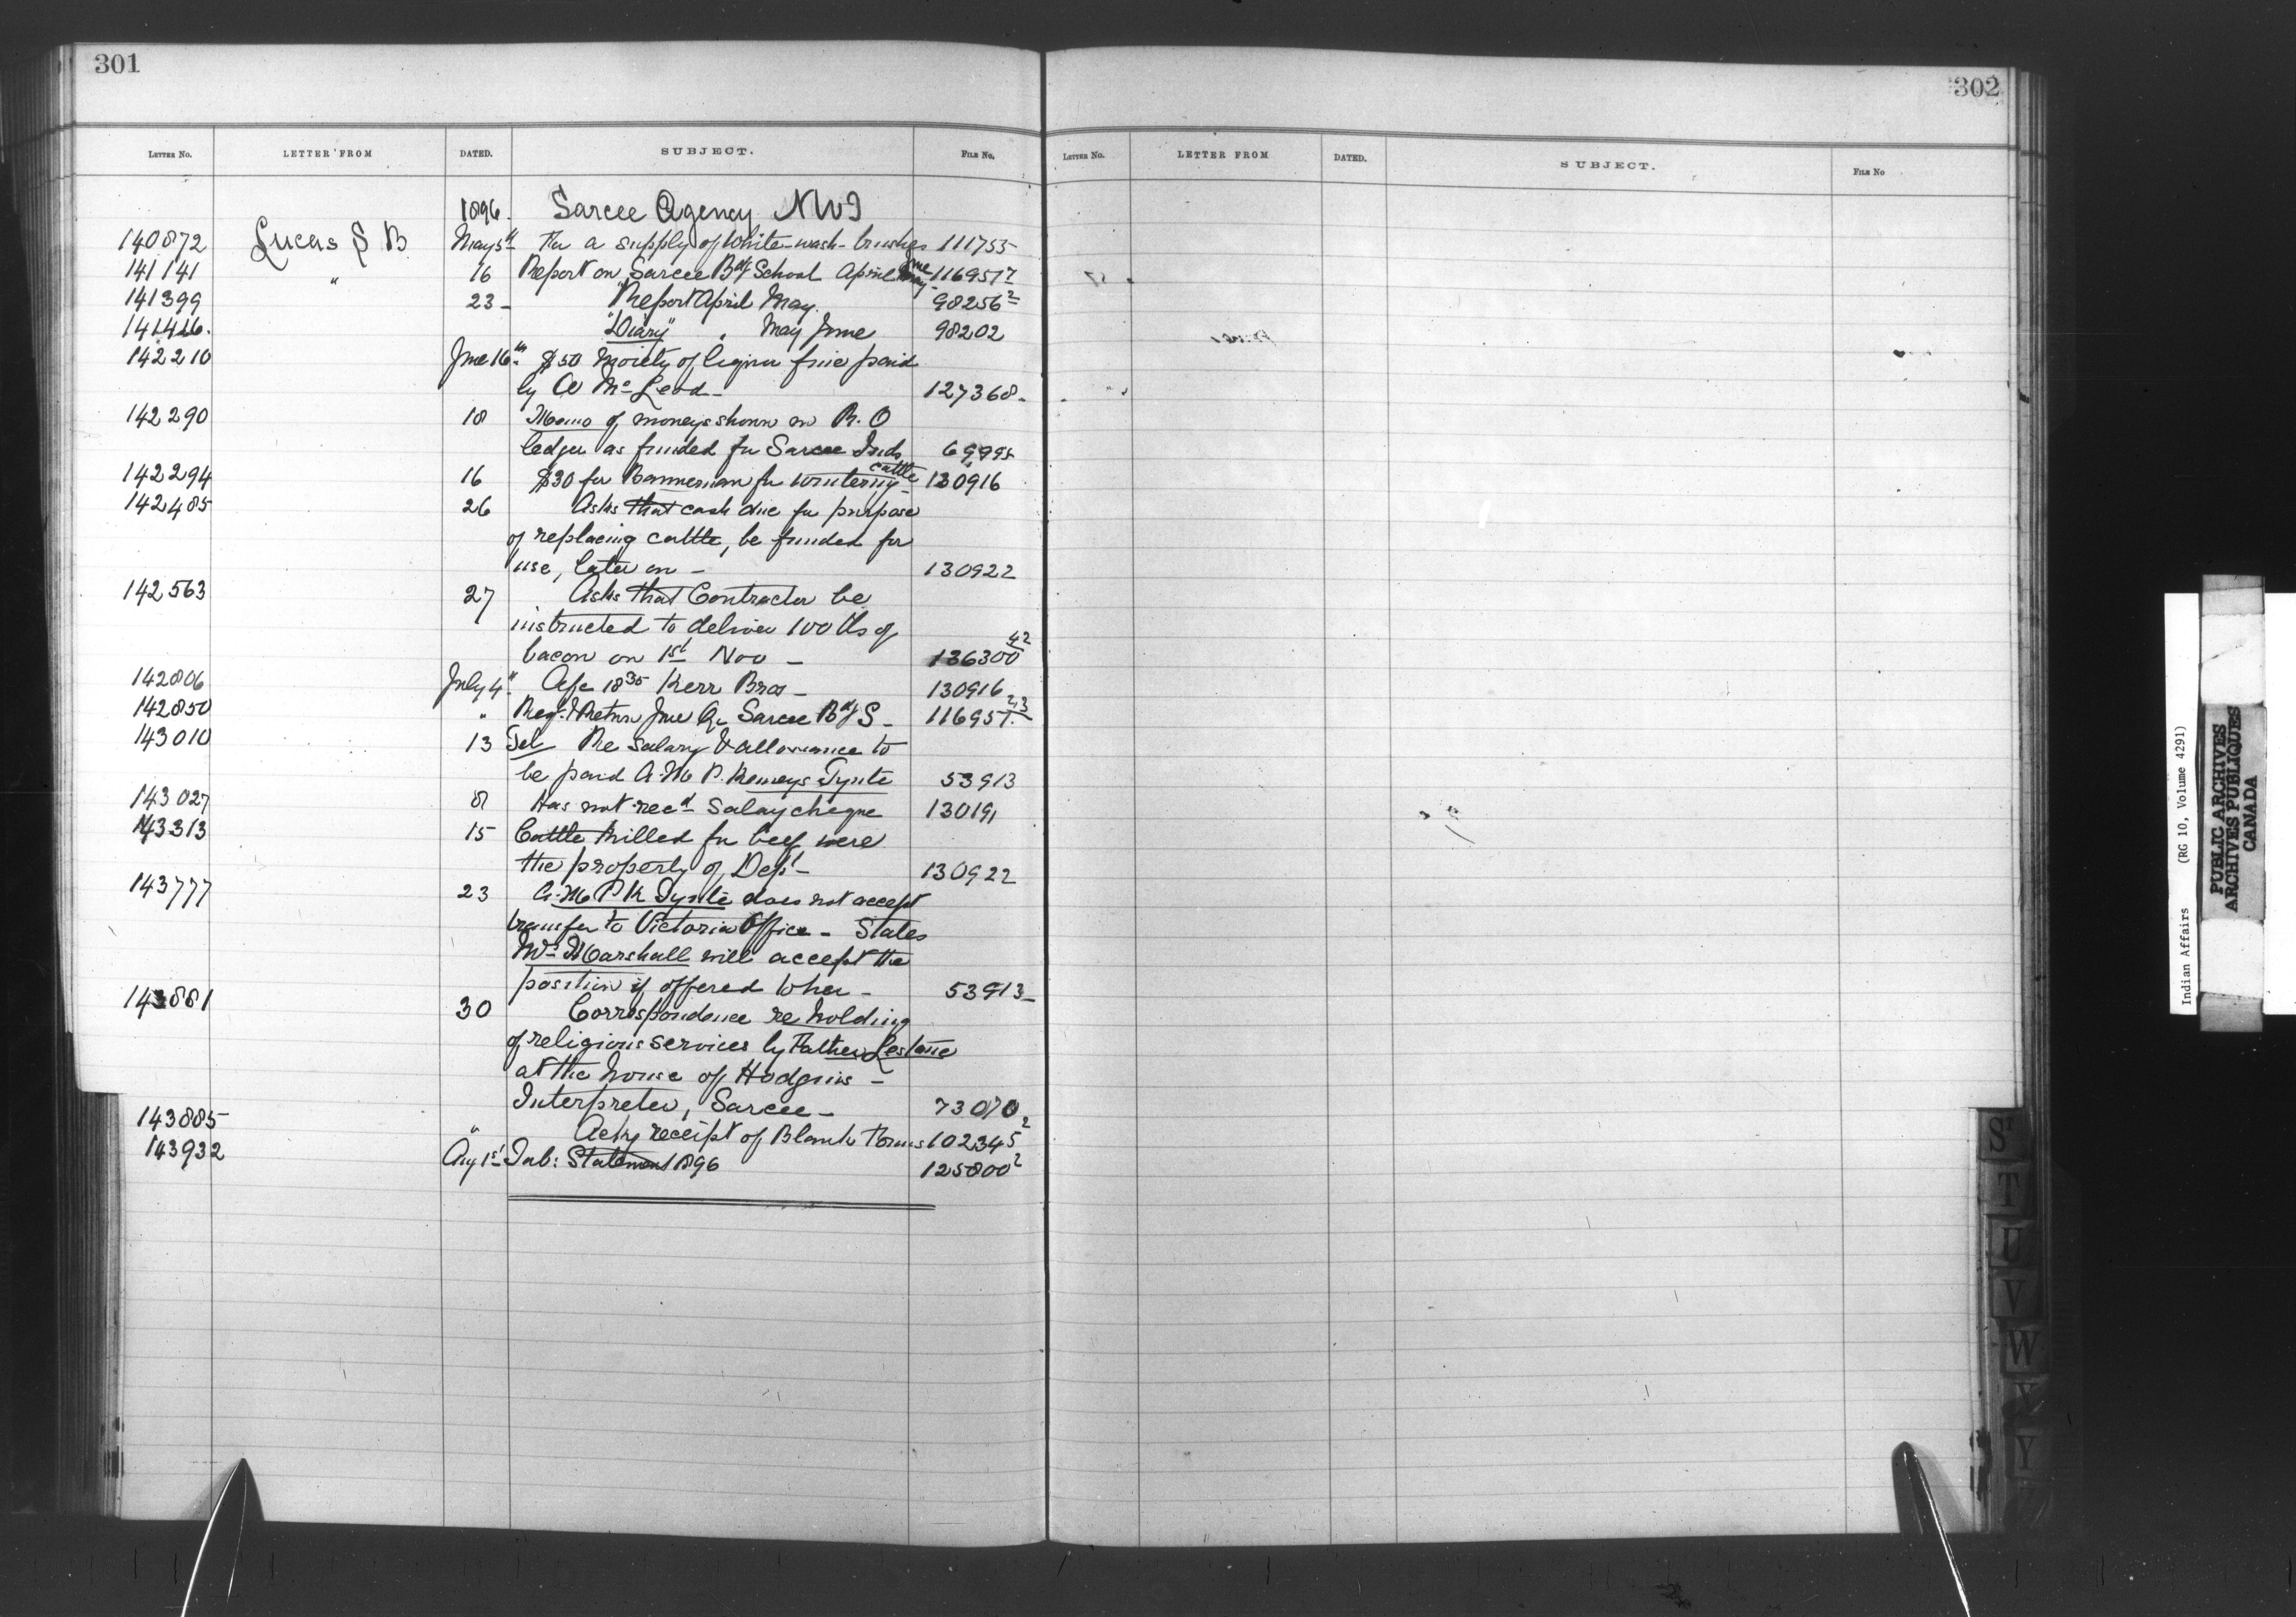 301
302
LETTER No. LETTER FROM DATED. SUBJECT. FILE No.
LETTER No. LETTER FROM DATED. SUBJECT. FILE No
1896. Sarcee Agency NWT
140872 Lucas S B May 5th For a supply of White-wash-brushes 111755
141141 " 16 Report on Sarcee Bdg School April June May 116957
141399 23 - "Report April May. 98256 2
141426. "Diary" " May June 98202
142210 June 16th $50 Moiety of liquor fine paid
by A McLeod - 127368.
142290 18 Memo of moneys shown on R. O
ledger as funded for Sarcee Inds 69995
142294 16 $30 for Bannerman for wintering cattle - 130916
142485 26 Asks that cash due for purpose
of replacing cattle, be funded for
use, later on - 130922
142563 27 Asks that Contractor be
instructed to deliver 100 lbs of
bacon on 1st Nov - 136300 42
142806 July 4th A/c 18 35 Kerr Bros - 130916
142850 " Reqn & Return June Qr Sarcee Bdg S - 116957. 23
143010 13 Tel Re Salary & allowance to
be paid A. McP. Kemeys Tynte 53913
143027 8 Has not recd Salary cheque 130191
143313 15 Cattle killed for beef were
the property of Dept - 130922
143777 23 A. Mc P K Tynte does not accept
transfer to Victoria Office - States
Mr Marshall will accept the
position if offered to her - 53913 -
143881 30 Correspondence re holding
of religious services by Father Lestanc
at the house of Hodgins -
Interpreter, Sarcee - 73070
143885 " Ackg receipt of Blank Forms 102345 2
143932 Aug 1st Tab: Statement 1896 125800 2
ST
T
U
V
W
X
Y
Z
Indian Affairs (RG 10, Volume 4291)
PUBLIC ARCHIVES
ARCHIVES PUBLIQUES
CANADA